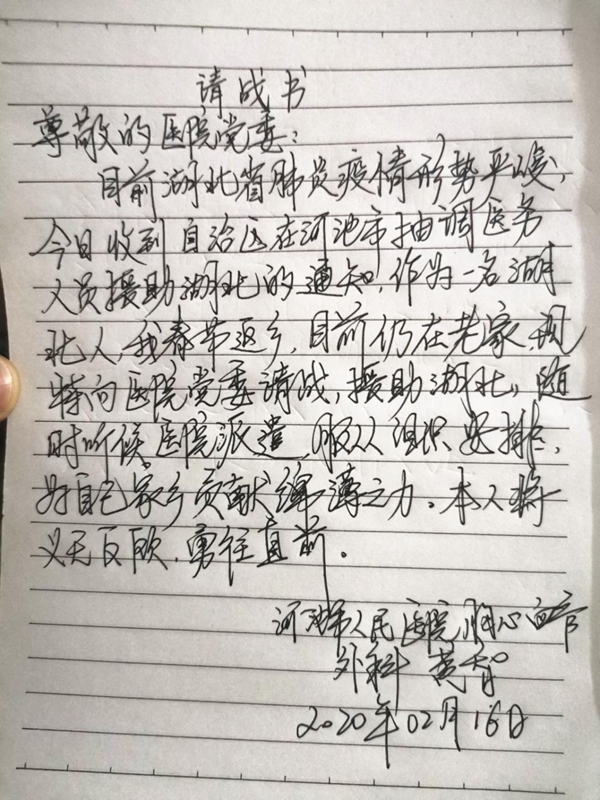 请战书
尊敬的医院党委：
目前湖北省肺炎疫情形势严峻，
今日收到自治区在河池市抽调医务
人员援助湖北的通知，作为一名湖
北人，我春节返乡，目前仍在老家，现
特向医院党委请战，援助湖北，随
时听候医院派遣，服从组织安排，
为自己家乡贡献绵薄之力。本人将
义无反顾，勇往直前。
河池市人民医院胸心血管
外科 黄智
2020年02月16日